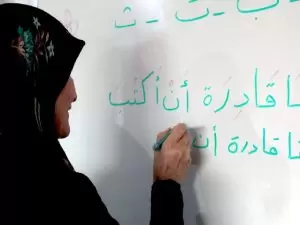 ب - ت - ث
نا قَادِرَة أنْ أَكتب
نا قادرة أن